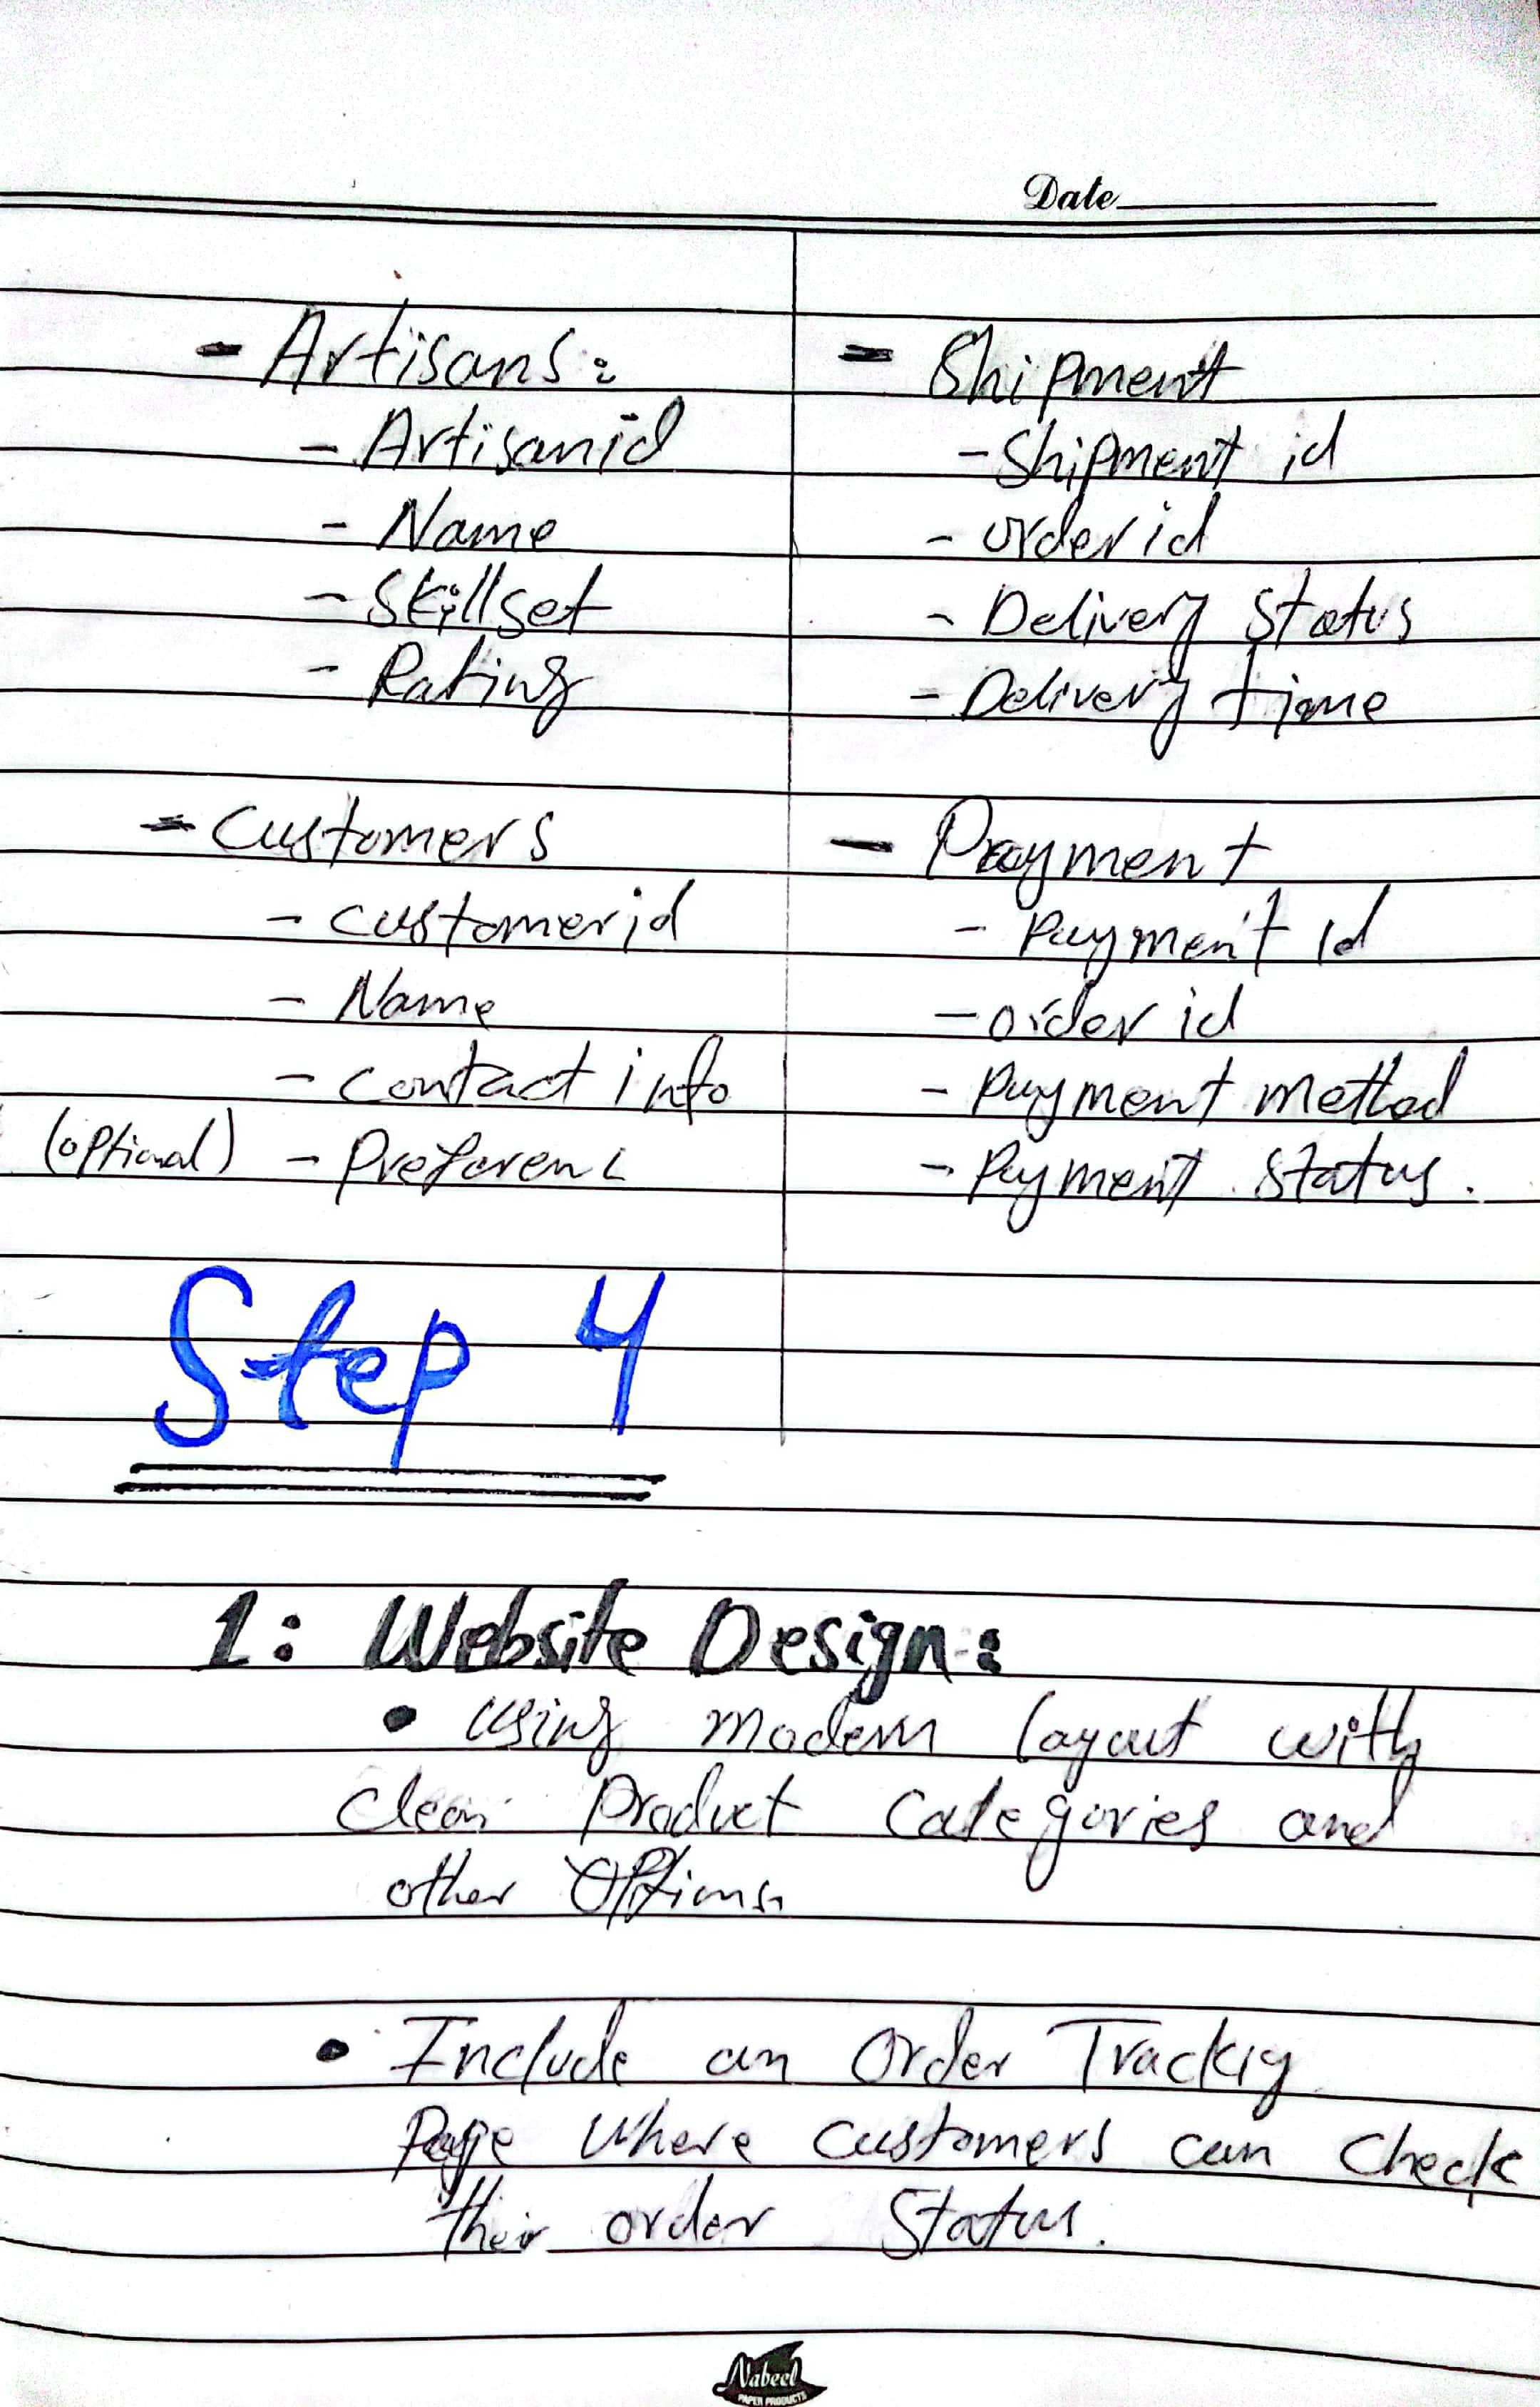 Date
- Artisans:
- Artisanid
- Name
- Skillset
- Rating
- Customers
- customerid
- Name
- contact info
(optional) - Preferenc
- Shipment
- Shipment id
- order id
- Delivery Status
- Delivery time
- Payment
- Payment id
- order id
- Payment method
- Payment status.
Step 4
1: Website Design:
• Using modern layout with
clean Product Categories and
other Options.
• Include an Order Trackig
Page where customers can check
their order Status.
Nabeel
PAPER PRODUCTS